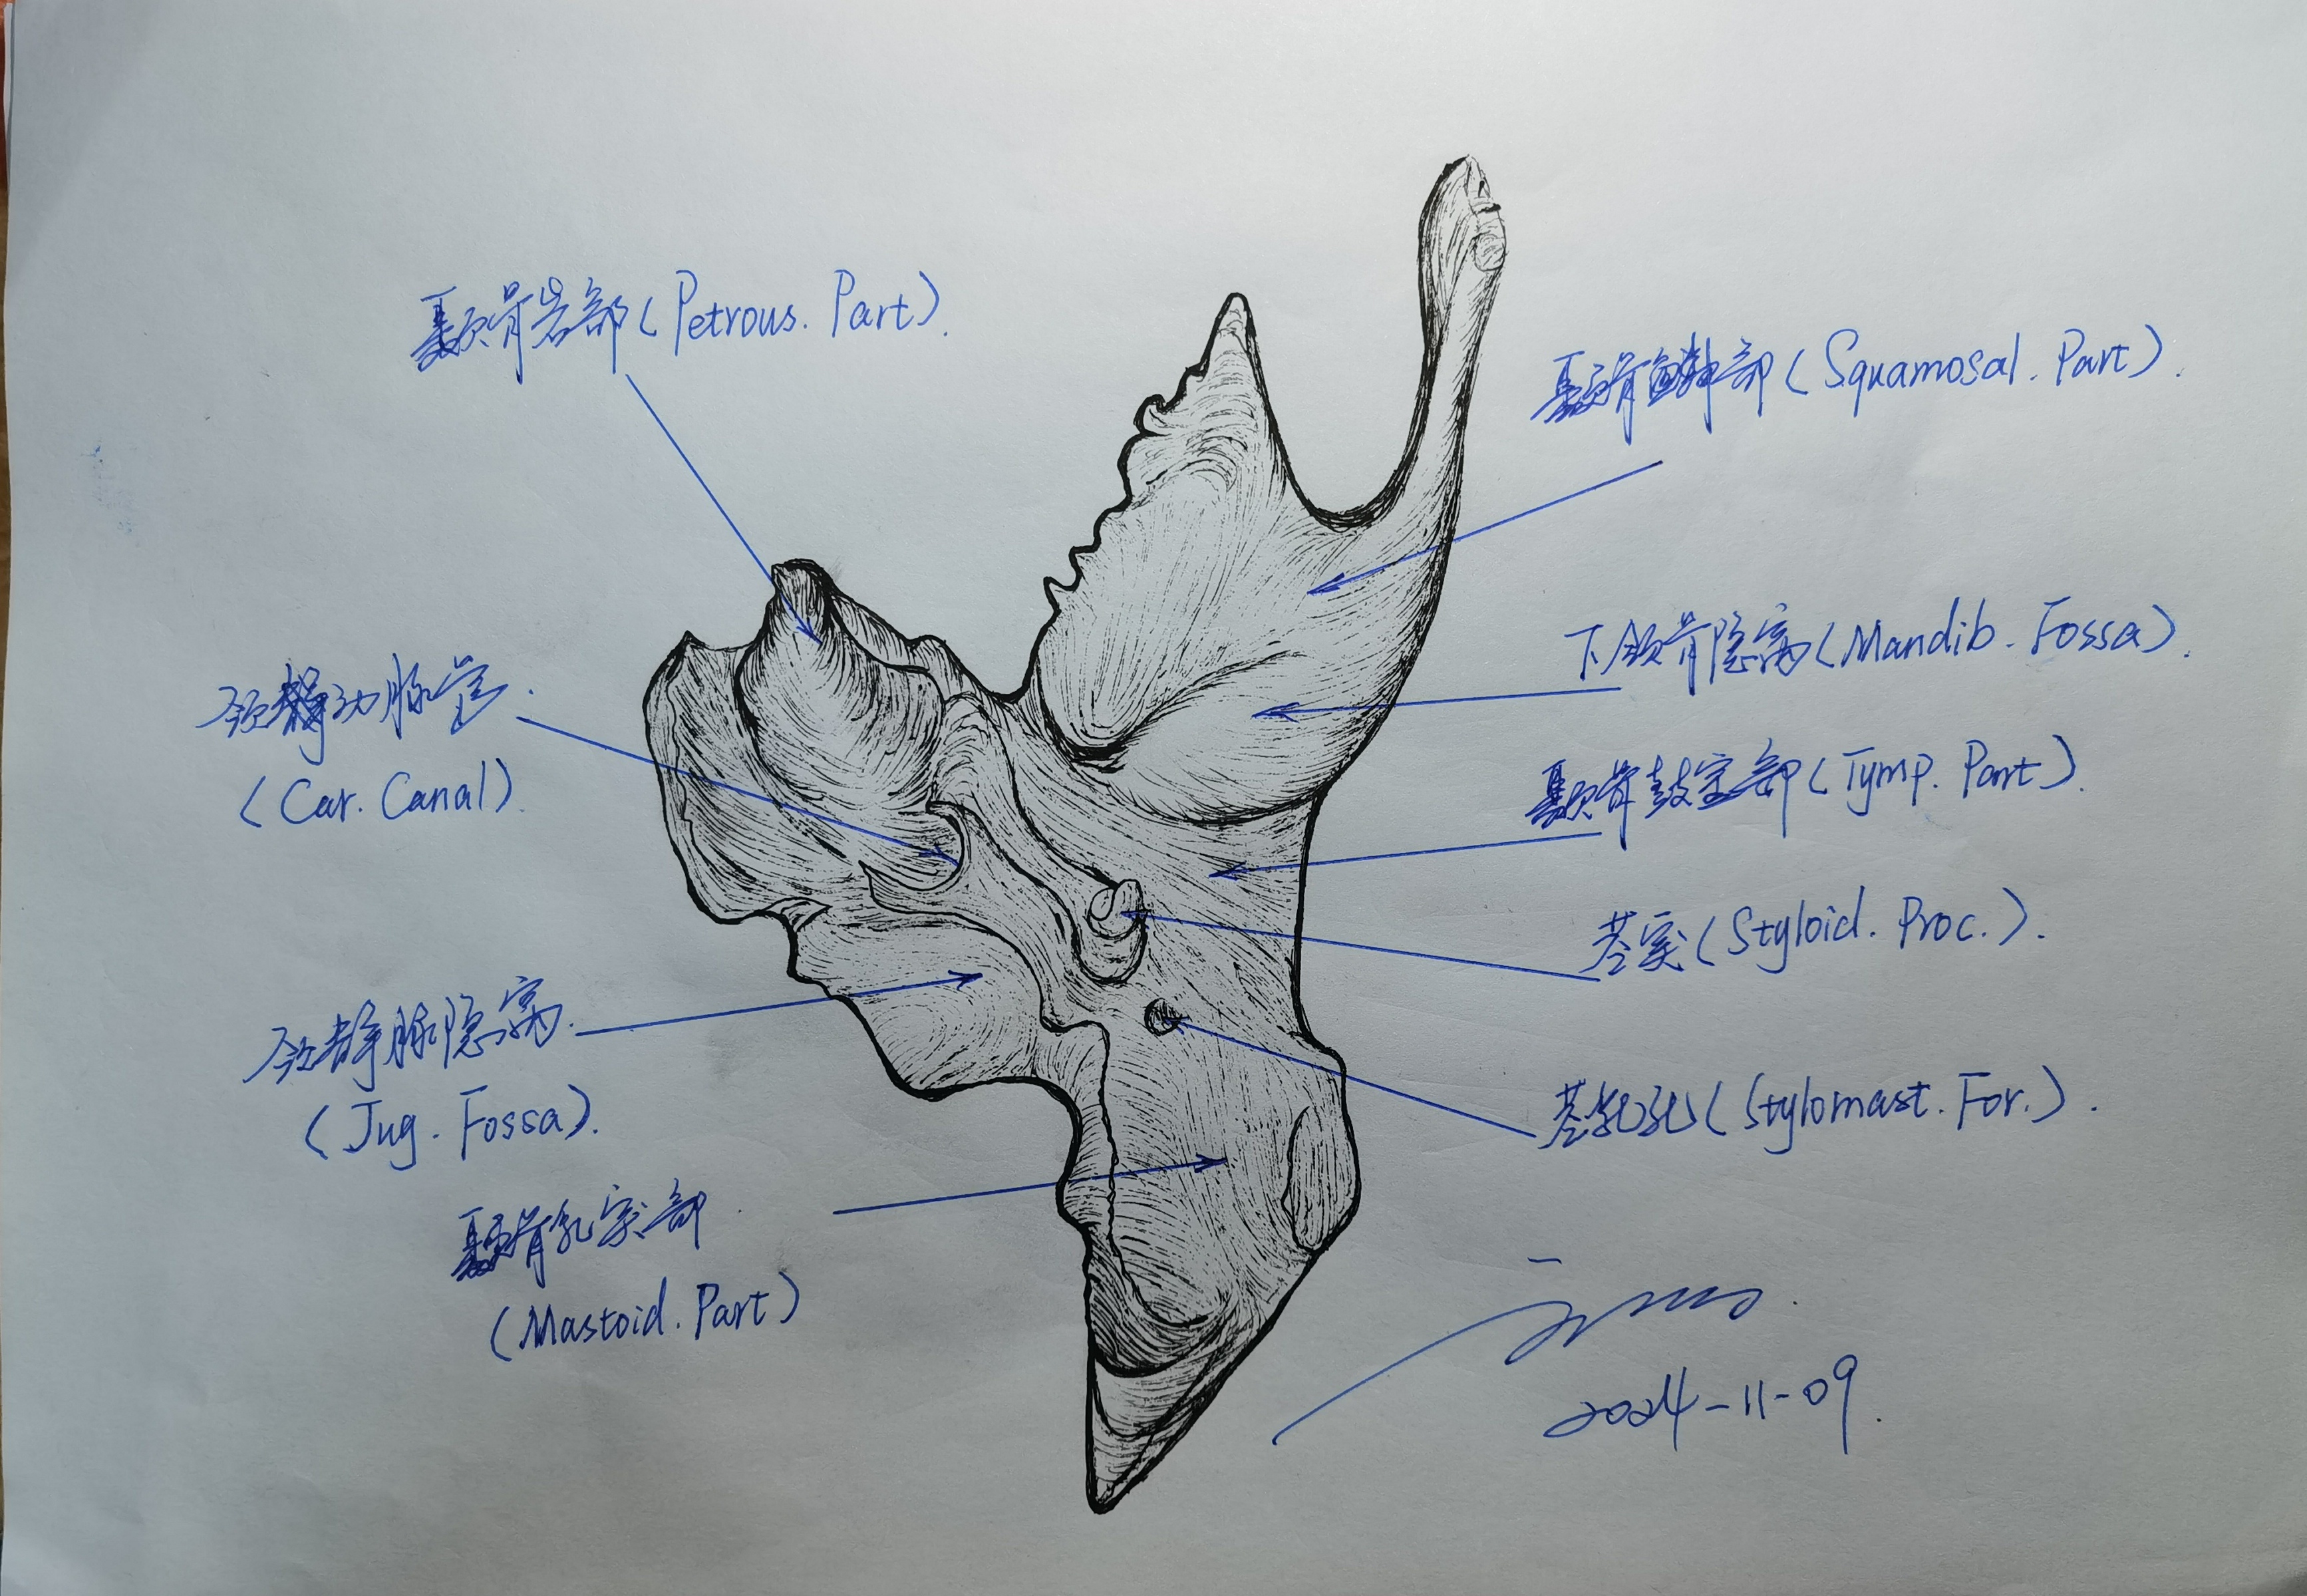 颞骨岩部(Petrous. Part).
颞骨鳞部(Squamosal. Part).
下颌骨隐窝(Mandib. Fossa).
颈动脉管.
(Car. Canal).
颞骨鼓室部(Tymp. Part).
茎突(Styloid. Proc.).
颈静脉隐窝.
(Jug. Fossa).
茎乳孔(Stylomast. For.).
颞骨乳突部
(Mastoid. Part)
2024-11-09.